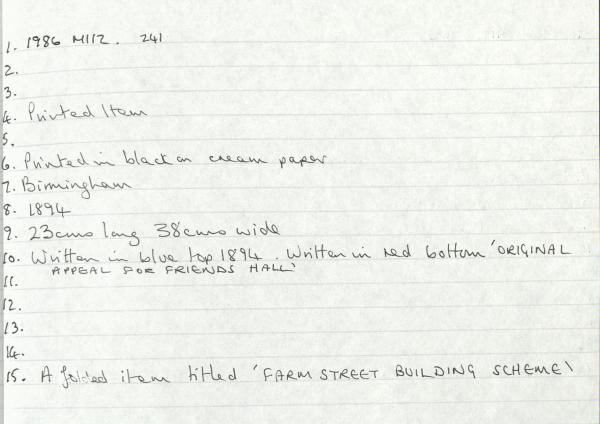 1. 1986 M112. 241
2.
3.
4. Printed Item
5.
6. Printed in black on cream paper
7. Birmingham
8. 1894
9. 23cms long 38cms wide
10. Written in blue top 1894. Written in red bottom 'ORIGINAL
APPEAL FOR FRIENDS HALL'
11.
12.
13.
14.
15. A folded item titled 'FARM STREET BUILDING SCHEME'